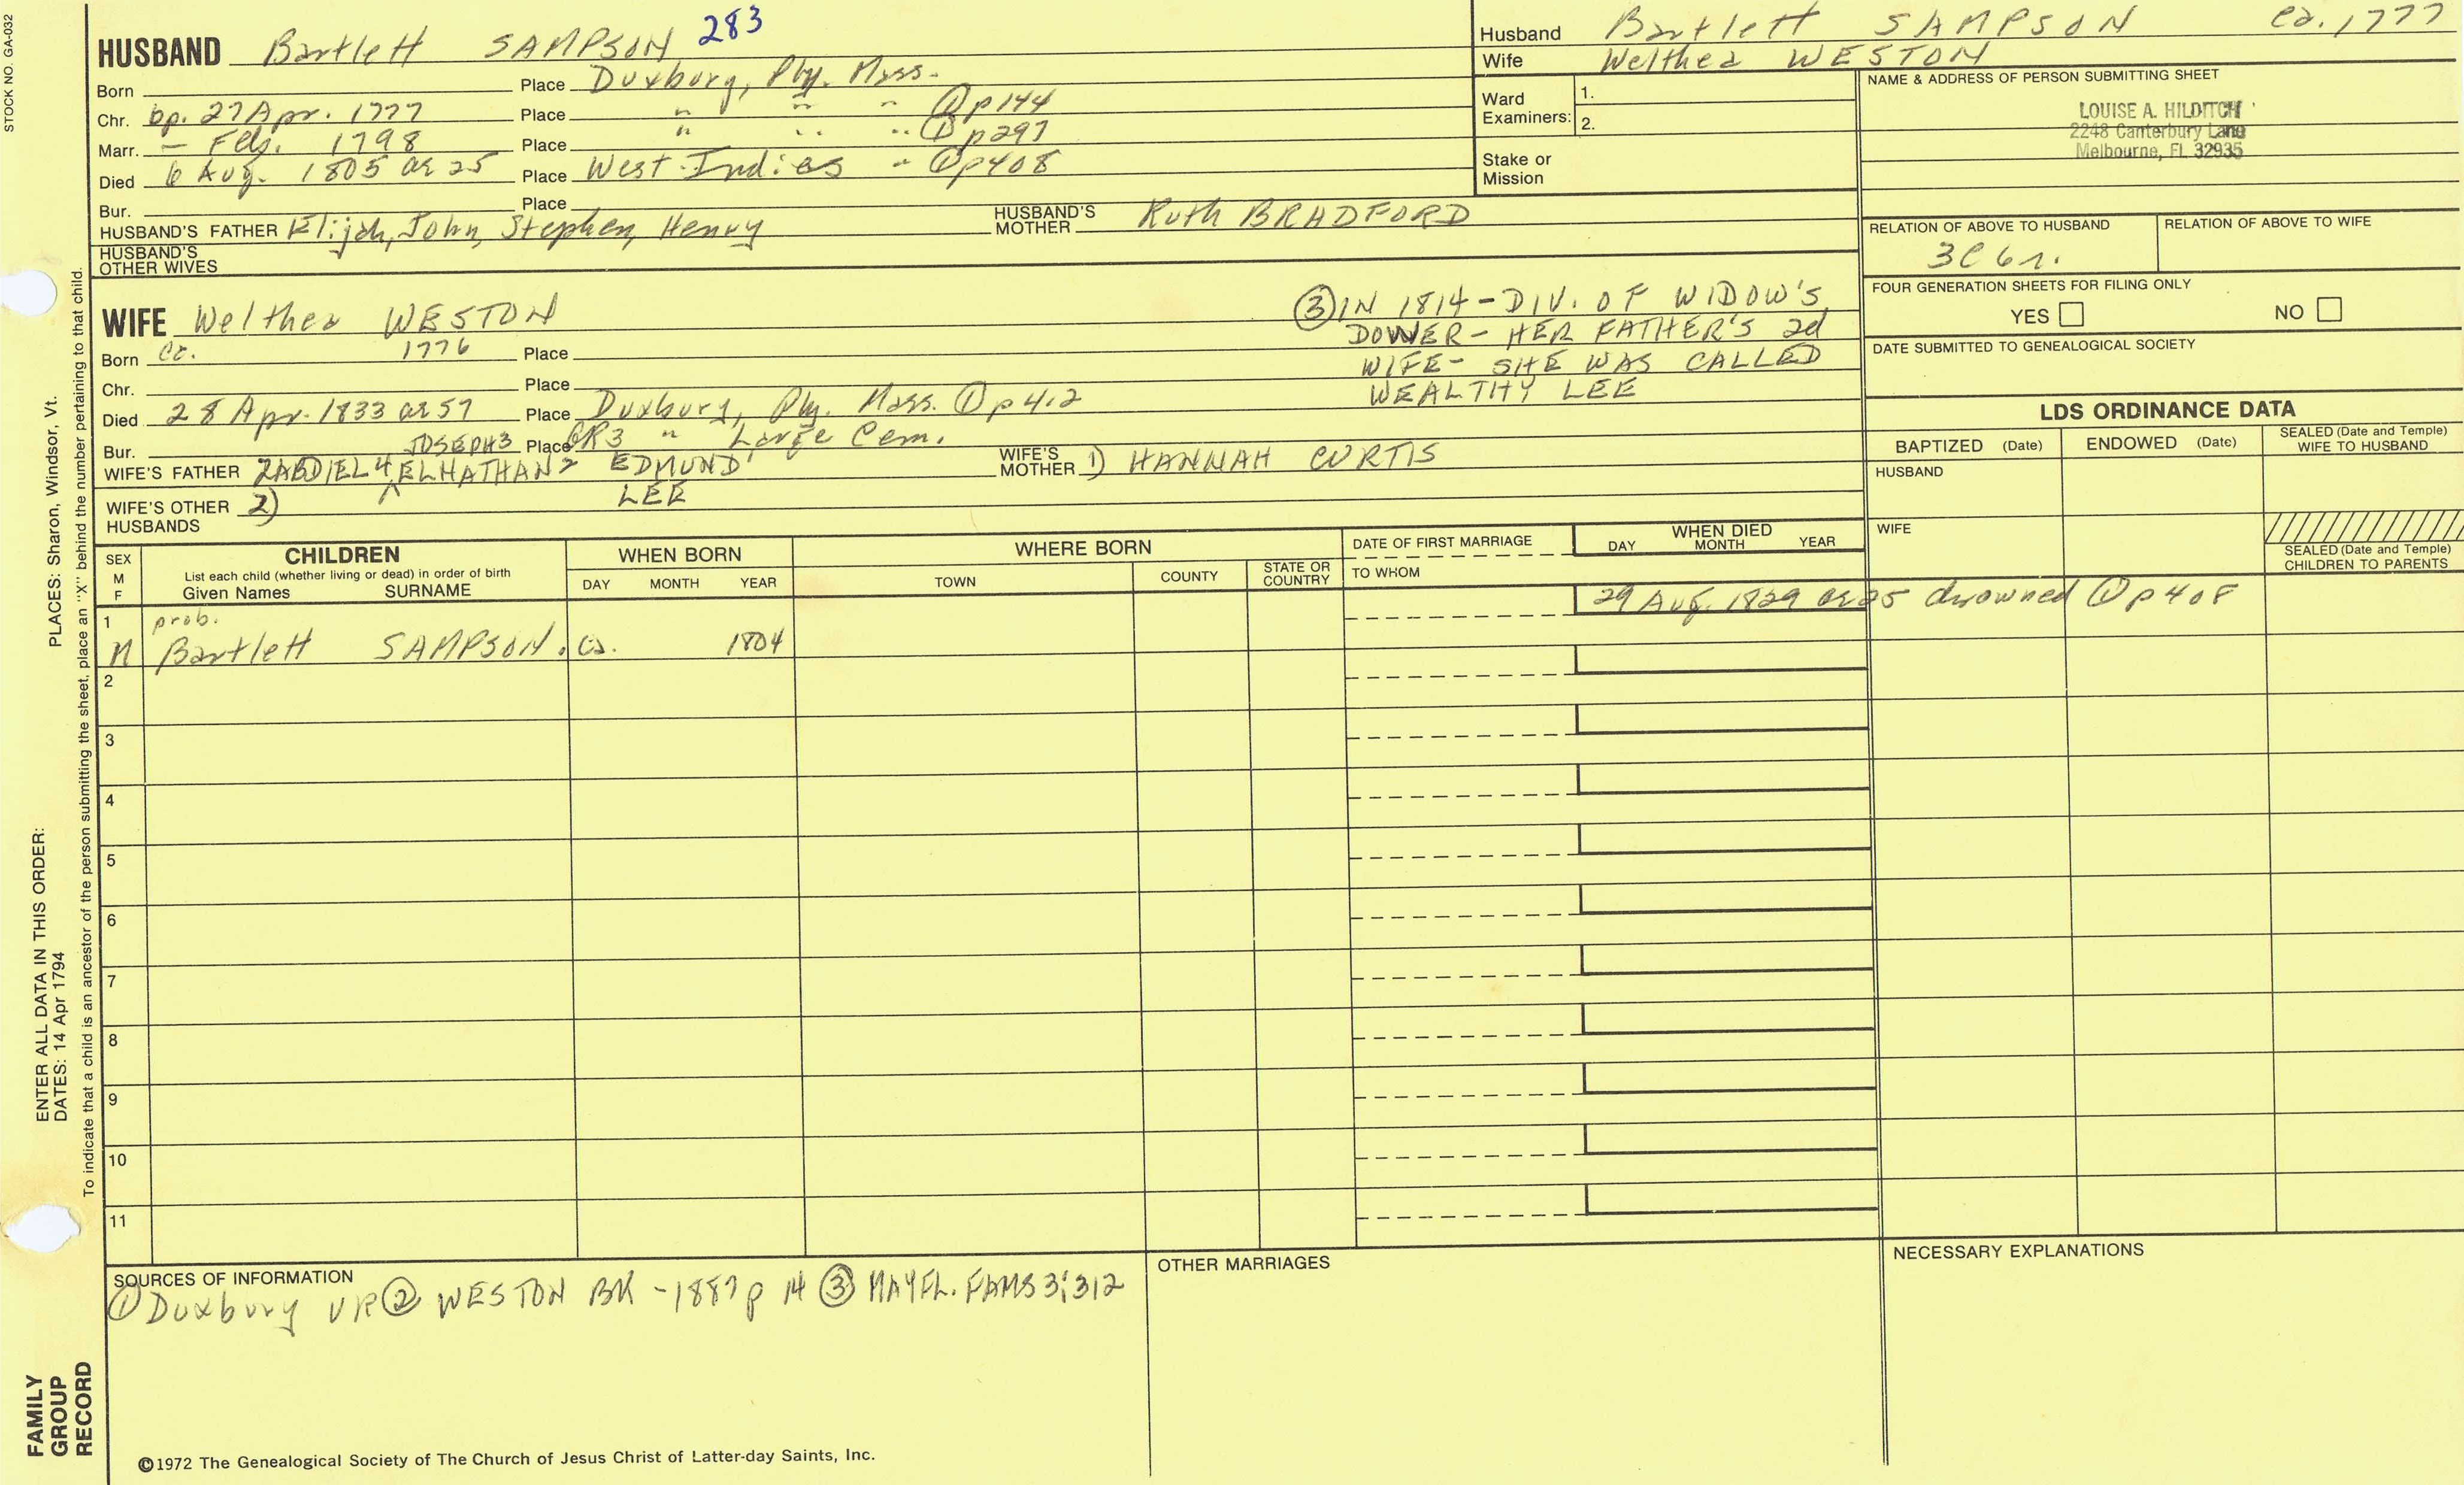 STOCK NO. GA-032
HUSBAND Bartlett SAMPSON 283
Born Place Duxbury, Ply. Mass.
Chr. bp. 27 Apr. 1777 Place " " " ① p 144
Marr. — Feb. 1798 Place " " " ① p 297
Died 6 Aug. 1805 ae 25 Place West Indies " ① p 408
Bur. Place
HUSBAND'S FATHER Elijah, John, Stephen, Henry HUSBAND'S MOTHER Ruth BRADFORD
HUSBAND'S OTHER WIVES
Husband Bartlett SAMPSON ca. 1777
Wife Welthea WESTON
Ward Examiners: 1.
2.
Stake or Mission
NAME & ADDRESS OF PERSON SUBMITTING SHEET
LOUISE A. HILDITCH
2248 Canterbury Lane
Melbourne, FL 32935
RELATION OF ABOVE TO HUSBAND RELATION OF ABOVE TO WIFE
3C 6r.
FOUR GENERATION SHEETS FOR FILING ONLY
YES NO
DATE SUBMITTED TO GENEALOGICAL SOCIETY
WIFE Welthea WESTON
Born ca. 1776 Place
Chr. Place
Died 28 Apr. 1833 ae 57 Place Duxbury, Ply. Mass. ① p 412
Bur. Place GR3 " Large Cem.
WIFE'S FATHER ZABDIEL 4 ^ JOSEPH 3 ELNATHAN 2 EDMUND 1 WIFE'S MOTHER 1) HANNAH CURTIS
WIFE'S OTHER HUSBANDS 2) LEE
③ IN 1814 - DIV. OF WIDOW'S
DOWER - HER FATHER'S 2d
WIFE - SHE WAS CALLED
WEALTHY LEE
LDS ORDINANCE DATA
BAPTIZED (Date) ENDOWED (Date) SEALED (Date and Temple) WIFE TO HUSBAND
HUSBAND
WIFE
SEALED (Date and Temple) CHILDREN TO PARENTS
SEX M F
CHILDREN
List each child (whether living or dead) in order of birth
Given Names SURNAME
WHEN BORN
DAY MONTH YEAR
WHERE BORN
TOWN COUNTY STATE OR COUNTRY
DATE OF FIRST MARRIAGE
TO WHOM
WHEN DIED
DAY MONTH YEAR
1 prob. 29 Aug. 1829 ae 25 drowned ① p 408
M Bartlett SAMPSON. ca. 1804
2
3
4
5
6
7
8
9
10
11
SOURCES OF INFORMATION
① Duxbury VR ② WESTON BK - 1887 p 14 ③ MAYFL. FAMS 3:312
OTHER MARRIAGES
NECESSARY EXPLANATIONS
©1972 The Genealogical Society of The Church of Jesus Christ of Latter-day Saints, Inc.
ENTER ALL DATA IN THIS ORDER:
DATES: 14 Apr 1794 PLACES: Sharon, Windsor, Vt.
To indicate that a child is an ancestor of the person submitting the sheet, place an "X" behind the number pertaining to that child.
FAMILY
GROUP
RECORD